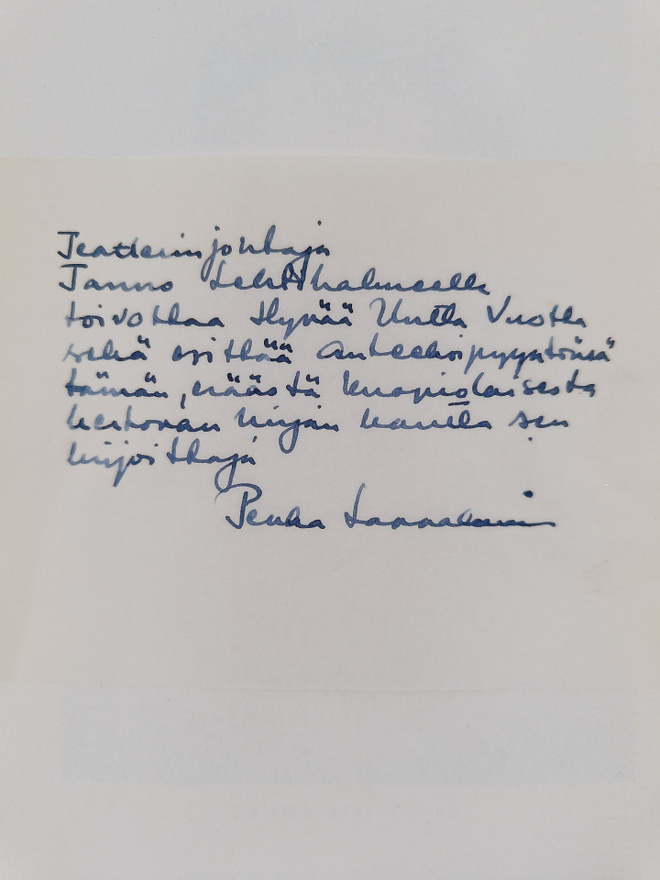 Teatterinjohtaja
Jarmo Lehtihalmeelle
toivottaa Hyvää Uutta Vuotta
sekä esittää anteeksipyyntönsä
tämän, eräästä kuopiolaisesta
kertovan kirjan kautta sen
kirjoittaja
Pekka